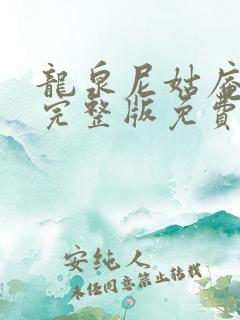 龍泉尼姑庵
完整版免費
安纯人
未经同意禁止转载